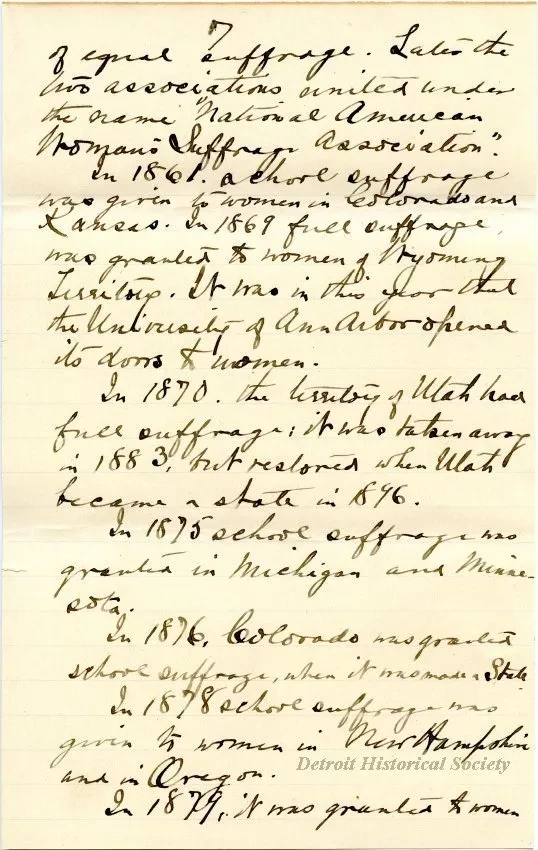 7
of equal suffrage. Later the
two associations united under
the name "National American
Woman's Suffrage Association".
In 1861. a school suffrage
was given to women in Colorado and
Kansas. In 1869 full suffrage
was granted to women of Wyoming
Territory. It was in this year that
the University of Ann Arbor opened
its doors to women.
In 1870. the territory of Utah had
full suffrage; it was taken away
in 1883, but restored when Utah
became a state in 1896.
In 1875 school suffrage was
granted in Michigan and Minne-
sota.
In 1876, Colorado was granted
school suffrage, when it was made a State
In 1878 school suffrage was
given to women in New Hampshire
and in Oregon.
Detroit Historical Society
In 1879, it was granted to women